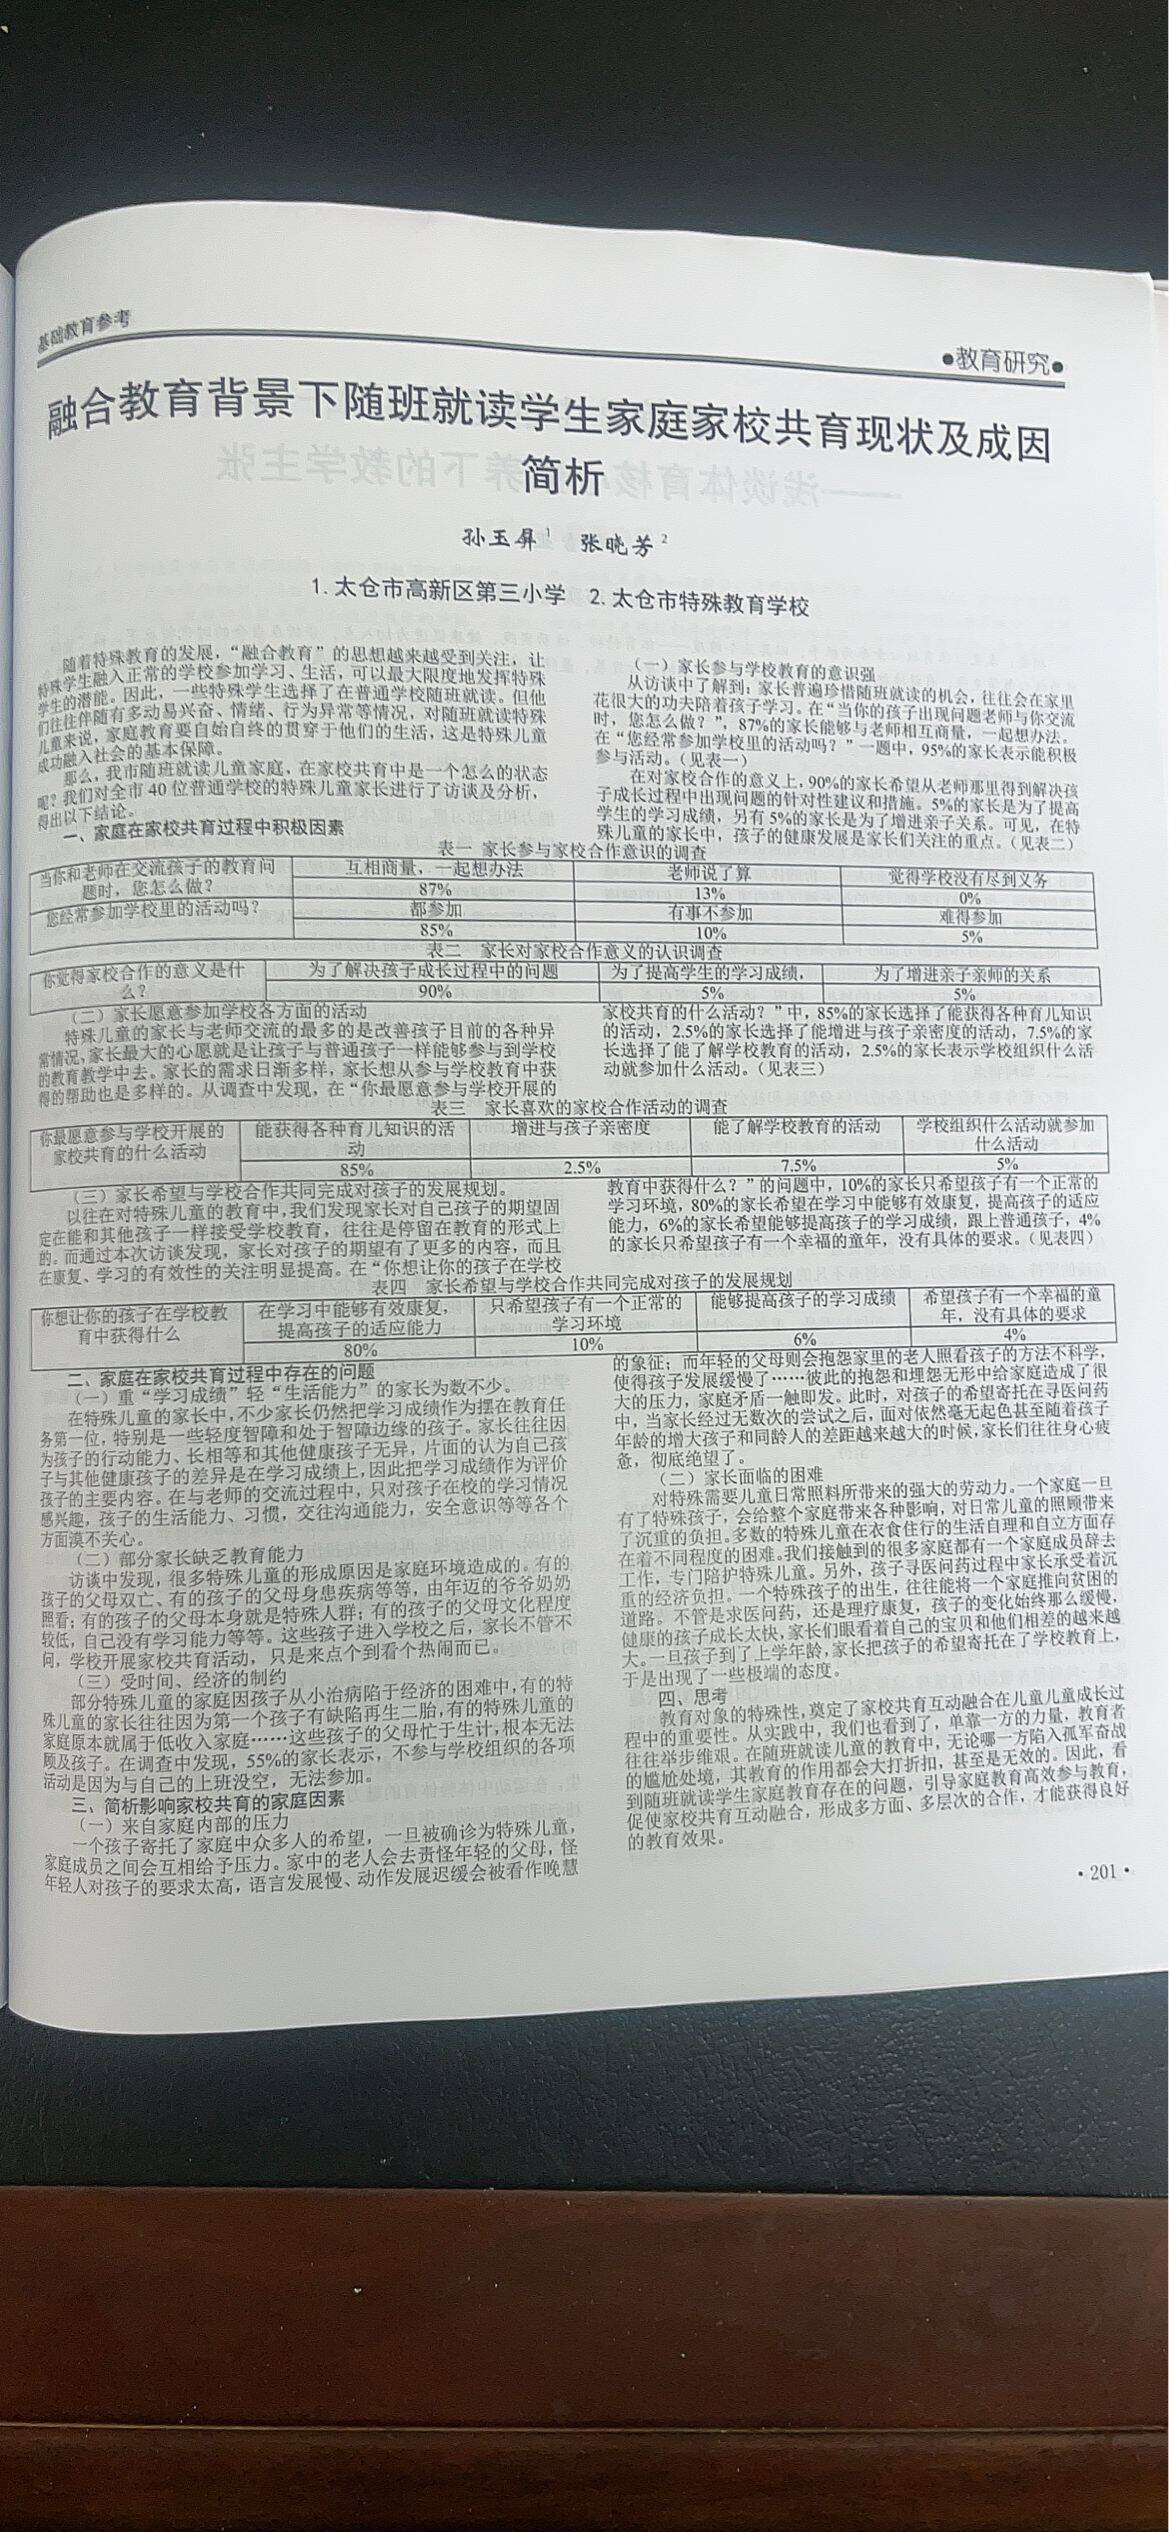 基础教育参考
●教育研究●
融合教育背景下随班就读学生家庭家校共育现状及成因
简析
孙玉屏1 张晓芳2
1.太仓市高新区第三小学 2.太仓市特殊教育学校
随着特殊教育的发展，“融合教育”的思想越来越受到关注，让
特殊学生融入正常的学校参加学习、生活，可以最大限度地发挥特殊
学生的潜能。因此，一些特殊学生选择了在普通学校随班就读。但他
们往往伴随有多动易兴奋、情绪、行为异常等情况，对随班就读特殊
儿童来说，家庭教育要自始自终的贯穿于他们的生活，这是特殊儿童
成功融入社会的基本保障。
那么，我市随班就读儿童家庭，在家校共育中是一个怎么的状态
呢？我们对全市 40 位普通学校的特殊儿童家长进行了访谈及分析，
得出以下结论。
一、家庭在家校共育过程中积极因素
（一）家长参与学校教育的意识强
从访谈中了解到：家长普遍珍惜随班就读的机会，往往会在家里
花很大的功夫陪着孩子学习。在“当你的孩子出现问题老师与你交流
时，您怎么做？”，87%的家长能够与老师相互商量，一起想办法。
在“您经常参加学校里的活动吗？”一题中，95%的家长表示能积极
参与活动。（见表一）
在对家校合作的意义上，90%的家长希望从老师那里得到解决孩
子成长过程中出现问题的针对性建议和措施。5%的家长是为了提高
学生的学习成绩，另有 5%的家长是为了增进亲子关系。可见，在特
殊儿童的家长中，孩子的健康发展是家长们关注的重点。（见表二）
表一 家长参与家校合作意识的调查
当你和老师在交流孩子的教育问
题时，您怎么做？
互相商量，一起想办法 老师说了算 觉得学校没有尽到义务
87% 13% 0%
您经常参加学校里的活动吗？ 都参加 有事不参加 难得参加
85% 10% 5%
表二 家长对家校合作意义的认识调查
你觉得家校合作的意义是什
么？
为了解决孩子成长过程中的问题 为了提高学生的学习成绩， 为了增进亲子亲师的关系
90% 5% 5%
（二）家长愿意参加学校各方面的活动
特殊儿童的家长与老师交流的最多的是改善孩子目前的各种异
常情况，家长最大的心愿就是让孩子与普通孩子一样能够参与到学校
的教育教学中去。家长的需求日渐多样，家长想从参与学校教育中获
得的帮助也是多样的。从调查中发现，在“你最愿意参与学校开展的
家校共育的什么活动？”中，85%的家长选择了能获得各种育儿知识
的活动，2.5%的家长选择了能增进与孩子亲密度的活动，7.5%的家
长选择了能了解学校教育的活动，2.5%的家长表示学校组织什么活
动就参加什么活动。（见表三）
表三 家长喜欢的家校合作活动的调查
你最愿意参与学校开展的
家校共育的什么活动
能获得各种育儿知识的活
动
增进与孩子亲密度
能了解学校教育的活动
学校组织什么活动就参加
什么活动
85% 2.5% 7.5% 5%
（三）家长希望与学校合作共同完成对孩子的发展规划。
以往在对特殊儿童的教育中，我们发现家长对自己孩子的期望固
定在能和其他孩子一样接受学校教育，往往是停留在教育的形式上
的。而通过本次访谈发现，家长对孩子的期望有了更多的内容，而且
在康复、学习的有效性的关注明显提高。在“你想让你的孩子在学校
教育中获得什么？”的问题中，10%的家长只希望孩子有一个正常的
学习环境，80%的家长希望在学习中能够有效康复，提高孩子的适应
能力，6%的家长希望能够提高孩子的学习成绩，跟上普通孩子，4%
的家长只希望孩子有一个幸福的童年，没有具体的要求。（见表四）
表四 家长希望与学校合作共同完成对孩子的发展规划
你想让你的孩子在学校教
育中获得什么
在学习中能够有效康复，
提高孩子的适应能力
只希望孩子有一个正常的
学习环境
能够提高孩子的学习成绩
希望孩子有一个幸福的童
年，没有具体的要求
80% 10% 6% 4%
二、家庭在家校共育过程中存在的问题
（一）重“学习成绩”轻“生活能力”的家长为数不少。
在特殊儿童的家长中，不少家长仍然把学习成绩作为摆在教育任
务第一位，特别是一些轻度智障和处于智障边缘的孩子。家长往往因
为孩子的行动能力、长相等和其他健康孩子无异，片面的认为自己孩
子与其他健康孩子的差异是在学习成绩上，因此把学习成绩作为评价
孩子的主要内容。在与老师的交流过程中，只对孩子在校的学习情况
感兴趣，孩子的生活能力、习惯，交往沟通能力，安全意识等等各个
方面漠不关心。
（二）部分家长缺乏教育能力
访谈中发现，很多特殊儿童的形成原因是家庭环境造成的。有的
孩子的父母双亡、有的孩子的父母身患疾病等等，由年迈的爷爷奶奶
照看；有的孩子的父母本身就是特殊人群；有的孩子的父母文化程度
较低，自己没有学习能力等等。这些孩子进入学校之后，家长不管不
问，学校开展家校共育活动，只是来点个到看个热闹而已。
（三）受时间、经济的制约
部分特殊儿童的家庭因孩子从小治病陷于经济的困难中，有的特
殊儿童的家长往往因为第一个孩子有缺陷再生二胎，有的特殊儿童的
家庭原本就属于低收入家庭……这些孩子的父母忙于生计，根本无法
顾及孩子。在调查中发现，55%的家长表示，不参与学校组织的各项
活动是因为与自己的上班没空，无法参加。
三、简析影响家校共育的家庭因素
（一）来自家庭内部的压力
一个孩子寄托了家庭中众多人的希望，一旦被确诊为特殊儿童，
家庭成员之间会互相给予压力。家中的老人会去责怪年轻的父母，怪
年轻人对孩子的要求太高，语言发展慢、动作发展迟缓会被看作晚慧
的象征；而年轻的父母则会抱怨家里的老人照看孩子的方法不科学，
使得孩子发展缓慢了……彼此的抱怨和埋怨无形中给家庭造成了很
大的压力，家庭矛盾一触即发。此时，对孩子的希望寄托在寻医问药
中，当家长经过无数次的尝试之后，面对依然毫无起色甚至随着孩子
年龄的增大孩子和同龄人的差距越来越大的时候，家长们往往身心疲
惫，彻底绝望了。
（二）家长面临的困难
对特殊需要儿童日常照料所带来的强大的劳动力。一个家庭一旦
有了特殊孩子，会给整个家庭带来各种影响，对日常儿童的照顾带来
了沉重的负担。多数的特殊儿童在衣食住行的生活自理和自立方面存
在着不同程度的困难。我们接触到的很多家庭都有一个家庭成员辞去
工作，专门陪护特殊儿童。另外，孩子寻医问药过程中家长承受着沉
重的经济负担。一个特殊孩子的出生，往往能将一个家庭推向贫困的
道路。不管是求医问药，还是理疗康复，孩子的变化始终那么缓慢，
健康的孩子成长太快，家长们眼看着自己的宝贝和他们相差的越来越
大。一旦孩子到了上学年龄，家长把孩子的希望寄托在了学校教育上，
于是出现了一些极端的态度。
四、思考
教育对象的特殊性，奠定了家校共育互动融合在儿童儿童成长过
程中的重要性。从实践中，我们也看到了，单靠一方的力量，教育者
往往举步维艰。在随班就读儿童的教育中，无论哪一方陷入孤军奋战
的尴尬处境，其教育的作用都会大打折扣，甚至是无效的。因此，看
到随班就读学生家庭教育存在的问题，引导家庭教育高效参与教育，
促使家校共育互动融合，形成多方面、多层次的合作，才能获得良好
的教育效果。
·201·